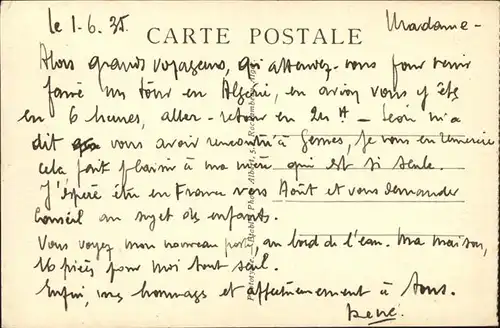 le 1-6.35.
Madame-
CARTE POSTALE
Alors grands voyageurs, qu'attendez-vous pour venir
faire un tour en Algérie, en avion vous y êtes
en 6 heures, aller-retour en 24 H - Léon m'a
dit vous avoir rencontré à Gennes, je vous en remercie
cela fait plaisir à ma mère qui est si seule.
J'espère être en France vers Août et vous demander
conseil au sujet des enfants.
Vous voyez mon nouveau poste au bord de l'eau. Ma maison,
16 pièces pour moi tout seul.
Enfin, mes hommages et affectueusement à tous.
René.